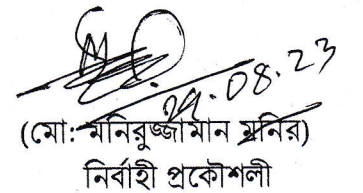 08.23
(মো: মনিরুজ্জামান মুনির)
নির্বাহী প্রকৌশলী